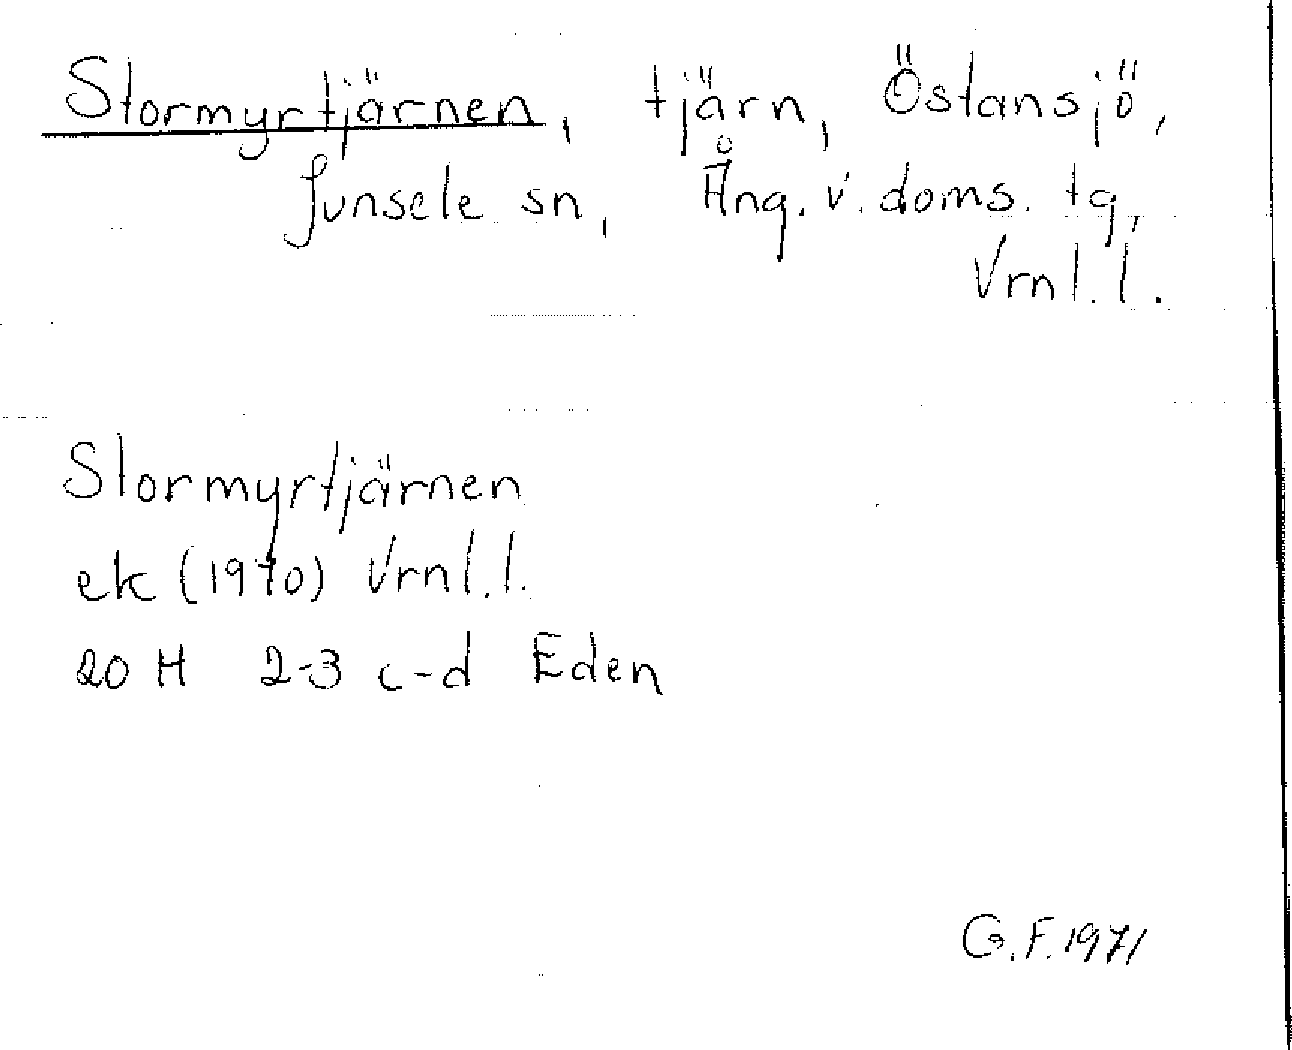 Stormyrtjärnen, tjärn, Östansjö,
Junsele sn, Ång. v. doms. tg,
Vrnl. l.
Stormyrtjärnen
ek (1970) Vrnl. l.
20 H 2-3 c-d Eden
G.F. 1971